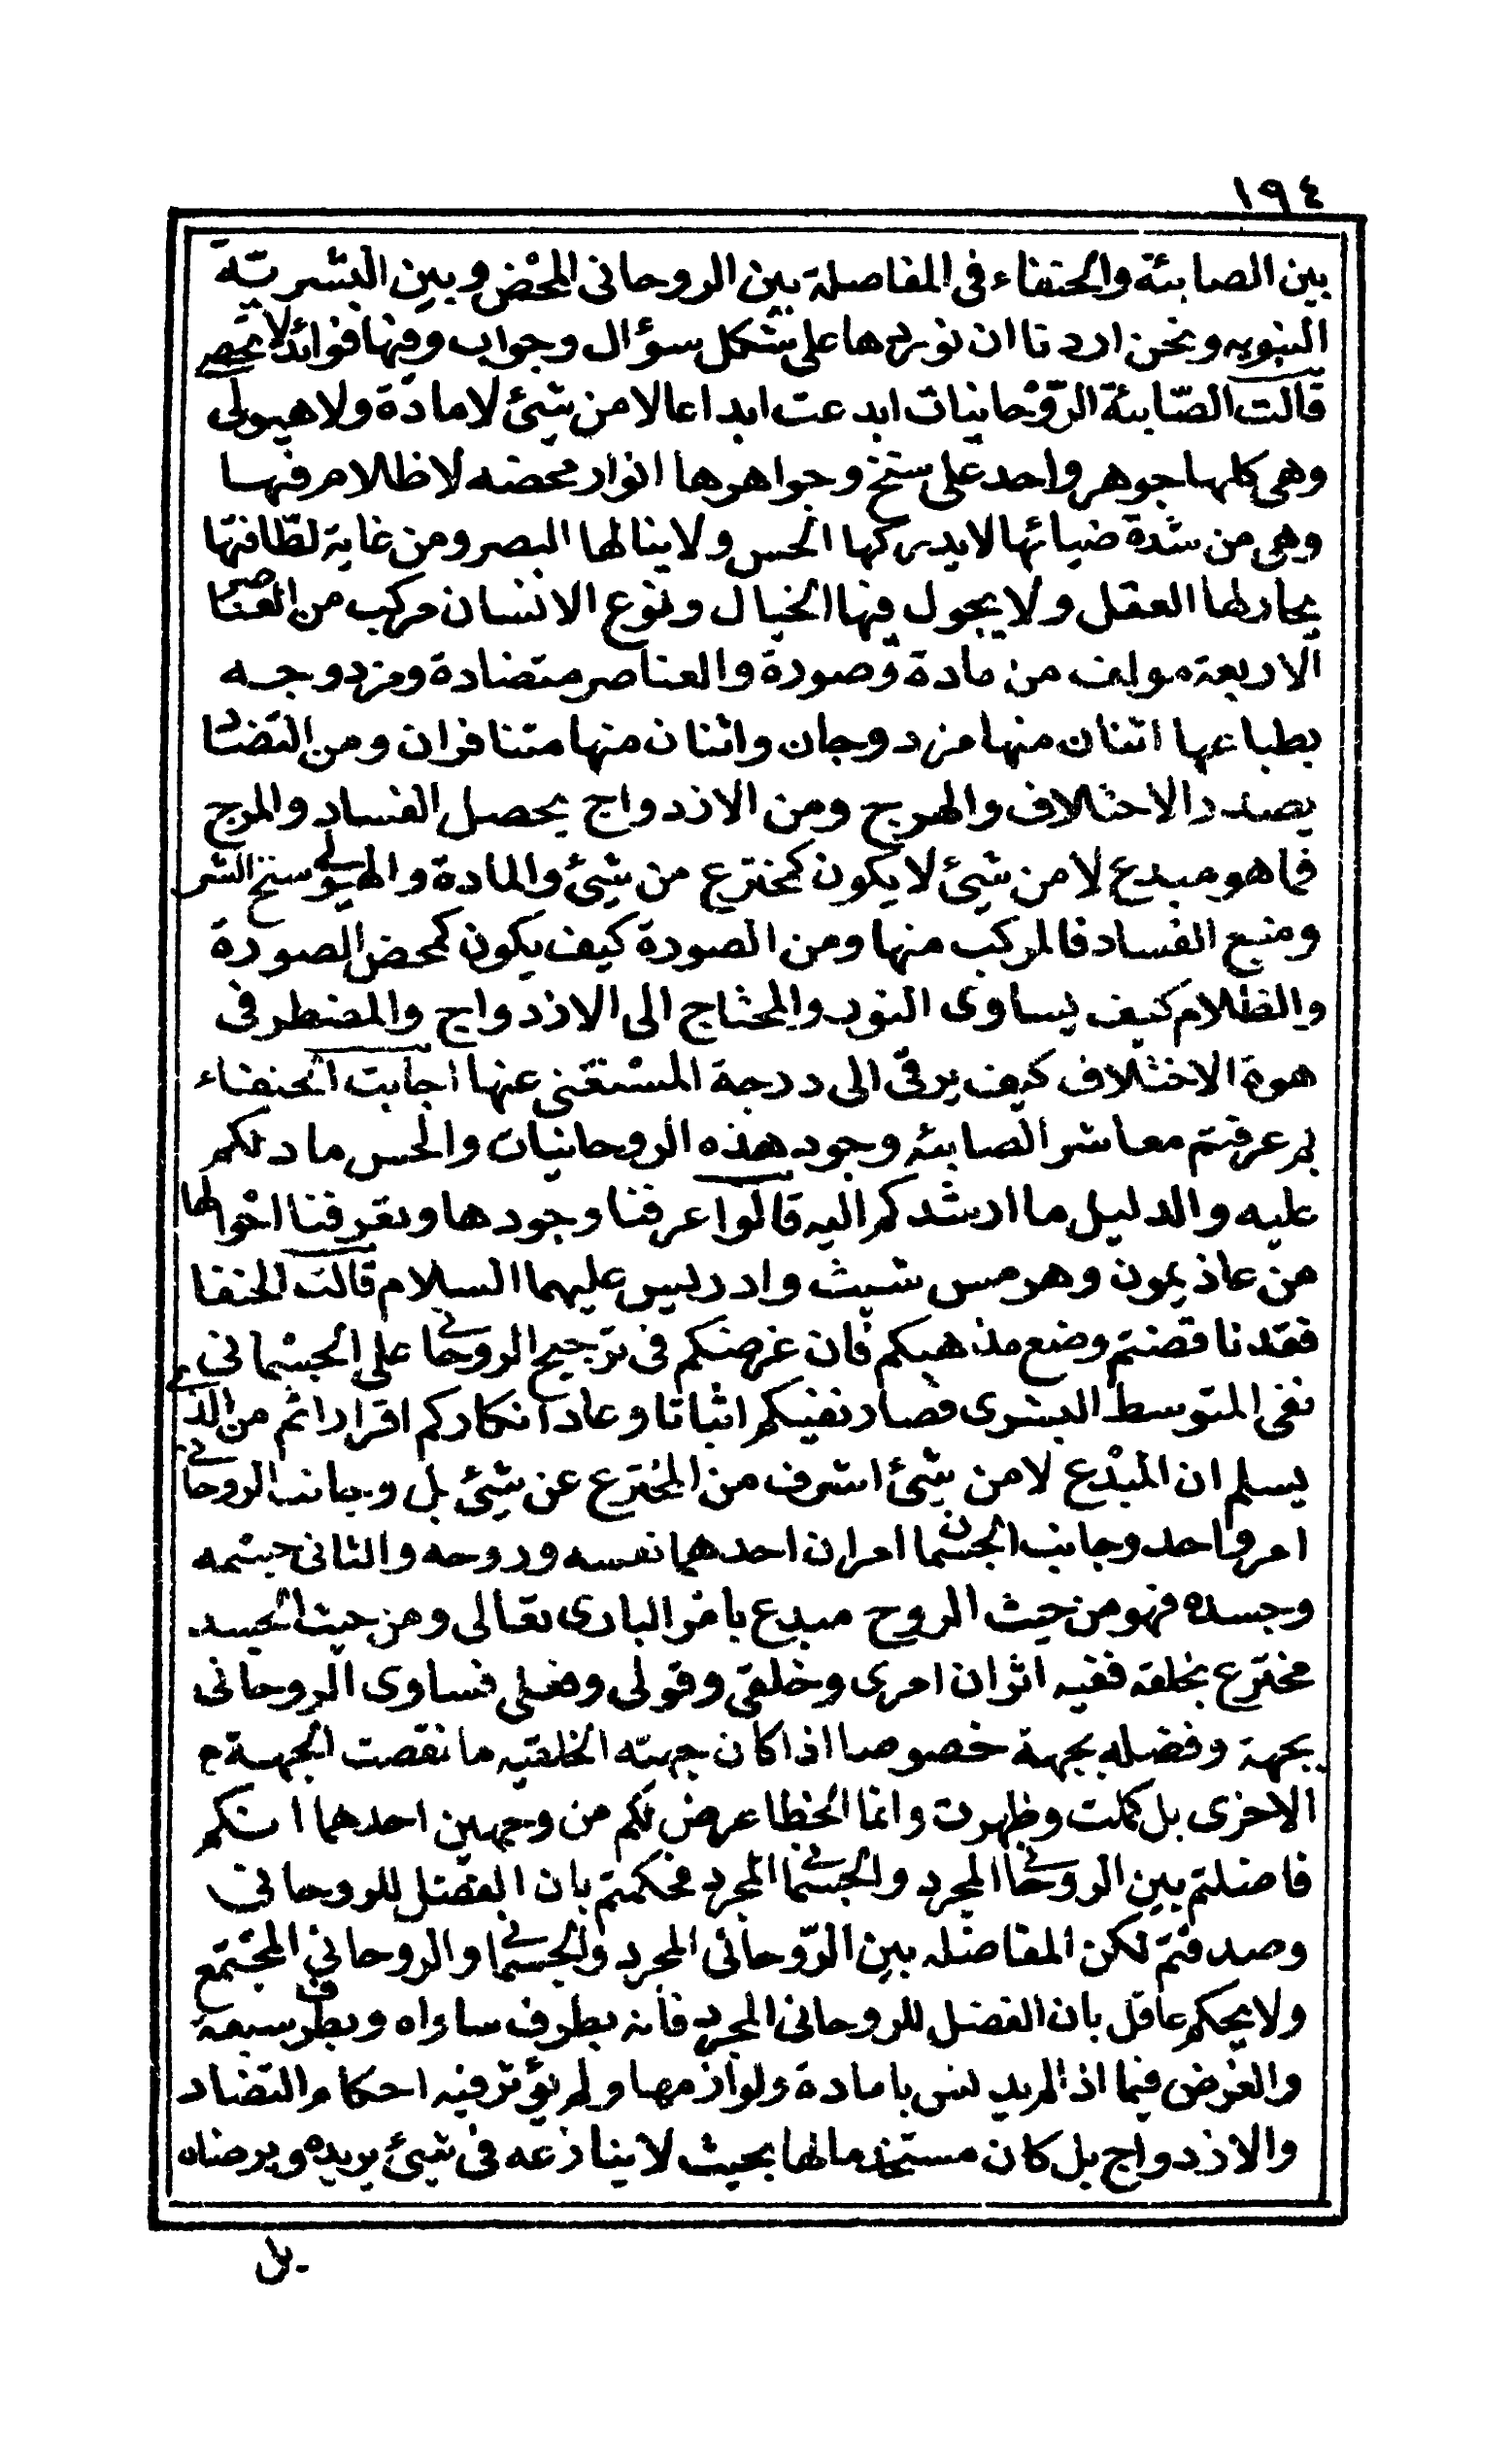 ١٩٤
بين الصابئة والحنفاء فى المفاضلة بين الروحانى المحض وبين البشرية
النبويه ونحن اردنا ان نوردها على شكل سؤال وجواب وفيها فوائد لا تحصر
قالت الصابئة الروحانيات ابدعت ابداعا لا من شئ لا مادة ولا هيولى
وهى كلها جوهر واحد على سنخ وجواهرها انوار محضه لا ظلام فيها
وهى من شدة ضيائها لا يدركها الحس ولا ينالها البصر ومن غاية لطافتها
يحار لها العقل ولا يجول فيها الخيال ونوع الانسان مركب من العناصر
الاربعة مولف من مادة وصورة والعناصر متضادة ومزدوجه
بطباعها اثنان منها مزدوجان واثنان منها متنافران ومن التضاد
يصدر الاختلاف والهرج ومن الازدواج يحصل الفساد والمرج
فما هو مبدع لا من شئ لا يكون كمخترع من شئ والمادة والهيولى سنخ الشر
ومنبع الفساد فالمركب منها ومن الصورة كيف يكون كمحض الصورة
والظلام كيف يساوى النور والمحتاج الى الازدواج والمضطر فى
هوة الاختلاف كيف يرقى الى درجة المستغنى عنها اجابت الحنفاء
بم عرفتم معاشر الصابئه وجود هذه الروحانيات والحس ما دلكم
عليه والدليل ما ارشدكم اليه قالوا عرفنا وجودها وتعرفنا احوالها
من عاذيمون وهرمس شيث وادريس عليهما السلام قالت الحنفا
فقد ناقضتم وضع مذهبكم فان غرضكم فى ترجيح الروحانى على الجسمانى
نفى المتوسط البشرى فصار نفيكم اثباتا وعاد انكاركم اقرارا ثم من الذى
يسلم ان المبدع لا من شئ اشرف من المخترع عن شئ بل وجانب الروحانى
امر واحد وجانب الجسمانى امران احدهما نفسه وروحه والثانى جسمه
وجسده فهو من حيث الروح مبدع بامر البارى تعالى ومن حيث الجسد
مخترع بخلقه ففيه اثران امرى وخلقى وقولى وفعلى فساوى الروحانى
بجهة وفضله بجهة خصوصا اذا كان جهته الخلقيه ما نقصت الجهة
الاخرى بل كملت وظهرت وانما الخطا عرض لكم من وجهين احدهما انكم
فاضلتم بين الروحانى المجرد والجسمانى المجرد فحكمتم بان الفضل للروحانى
وصدقتم لكن المفاضله بين الروحانى المجرد والجسمانى والروحانى المجتمع
ولا يحكم عاقل بان الفضل للروحانى المجرد فانه بطرف ساواه وبطرف سبقه
والغرض فيما اذا لم يدنس بامادة ولوازمها ولم يؤثر فيه احكام التضاد
والازدواج بل كان مستخدما لها بحيث لا ينازعه فى شئ يريده ويرضاه
بل